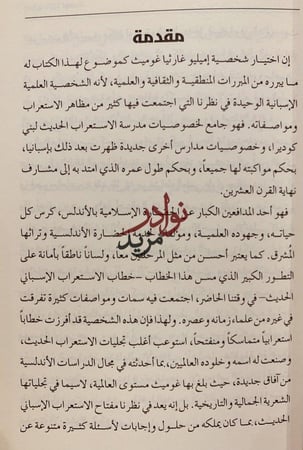 مقدمة
إن اختيار شخصية إميليو غارثيا غوميث كموضوع لهذا الكتاب له
ما يبرره من المبررات المنطقية والثقافية والعلمية، لأنه الشخصية العلمية
الإسبانية الوحيدة في نظرنا التي اجتمعت فيها كثير من مظاهر الاستعراب
ومواصفاته. فهو جامع لخصوصيات مدرسة الاستعراب الحديث لبني
كوديرا، وخصوصيات مدارس أخرى جديدة ظهرت بعد ذلك بإسبانيا،
بحكم مواكبته لها جميعاً، وبحكم طول عمره الذي امتد به إلى مشارف
نهاية القرن العشرين.
فهو أحد المدافعين الكبار عن الإسلامية بالأندلس، كرس كل
حياته، وجهوده العلمية، الحضارة الأندلسية وتراثها
المشرق. كما يعتبر أحسن من مثل المرحلتين معاً، ولساناً ناطقاً بأمانة على
التطور الكبير الذي مس هذا الخطاب -خطاب الاستعراب الإسباني
الحديث- في وقتنا الحاضر، اجتمعت فيه سمات ومواصفات كثيرة تفرقت
في غيره من علماء زمانه وعصره. ولهذا فإن هذه الشخصية قد أفرزت خطاباً
استعرابياً متماسكاً ومنفتحاً، استوعب أغلب تجليات الاستعراب الحديث،
وصنعت له اسمه وخلوده العالميين، بما أحدثته في مجال الدراسات الأندلسية
من آفاق جديدة، حيث بلغ بها غوميث مستوى العالمية، لاسيما في تجلياتها
الشعرية الجمالية والتاريخية. بل إنه يعد في نظرنا مفتاح الاستعراب الإسباني
الحديث، بما كان يملكه من حلول وإجابات لأسئلة كثيرة متنوعة عن
نوادر
مزيد